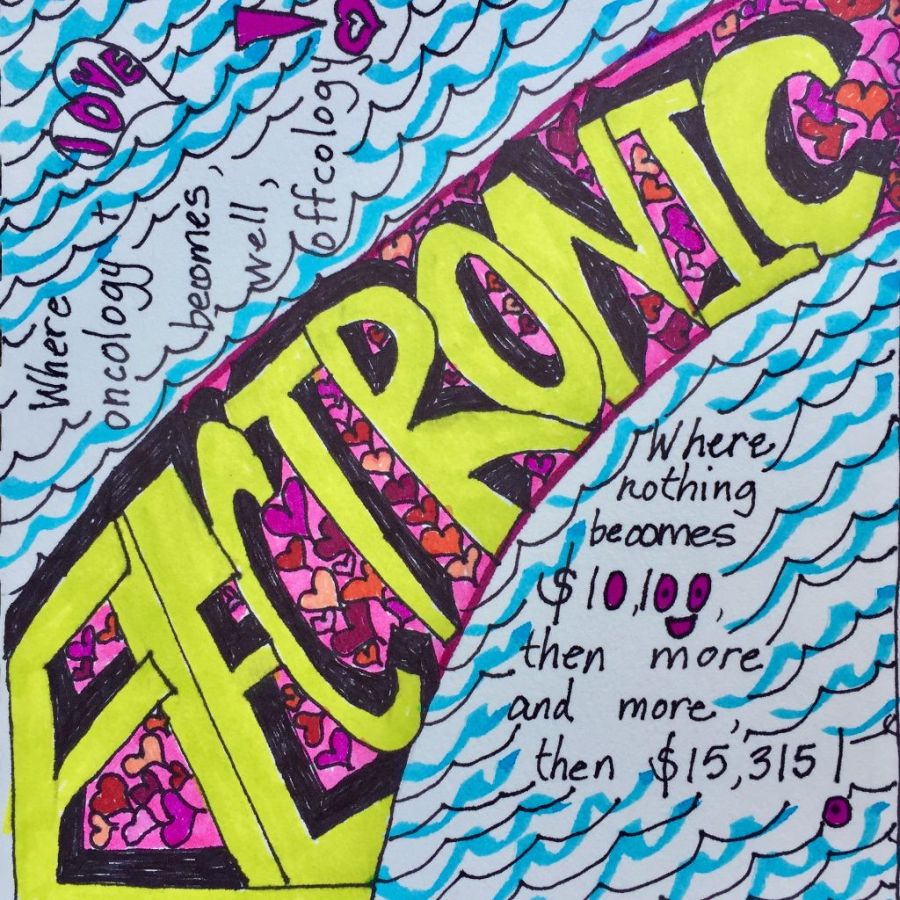 Where
oncology + LOVE
becomes,
well,
offcology!
ELECTRONIC
Where
nothing
becomes
$10,100,
then more
and more,
then $15,315!